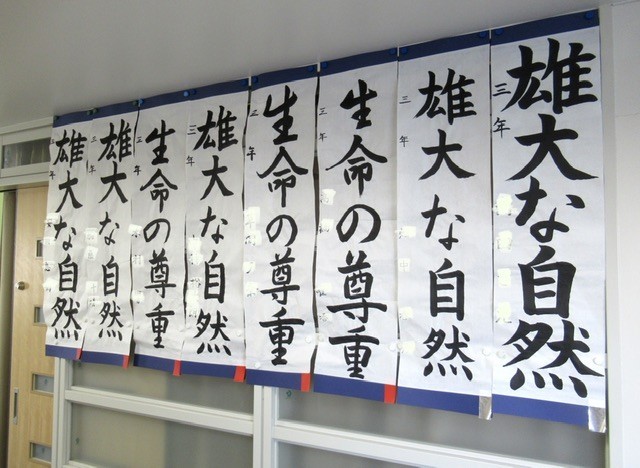 雄大な自然
三年
雄大な自然
三年
生命の尊重
三年
生命の尊重
三年
雄大な自然
三年
生命の尊重
三年
雄大な自然
三年
雄大な自然
三年